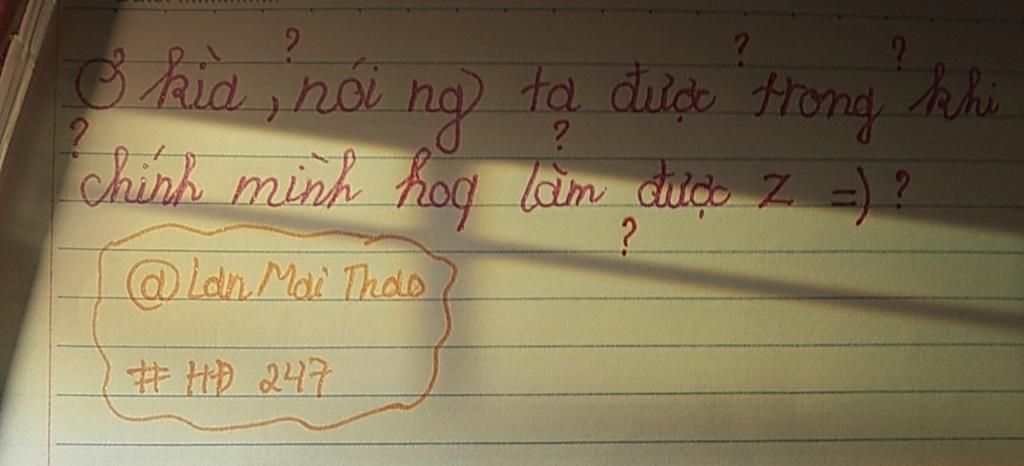 Ở kìa, nói ng ta được trong khi
chính mình hog làm được z =) ?
? ? ? ? ? ?
@Lan Mai Thao
# HĐ 247